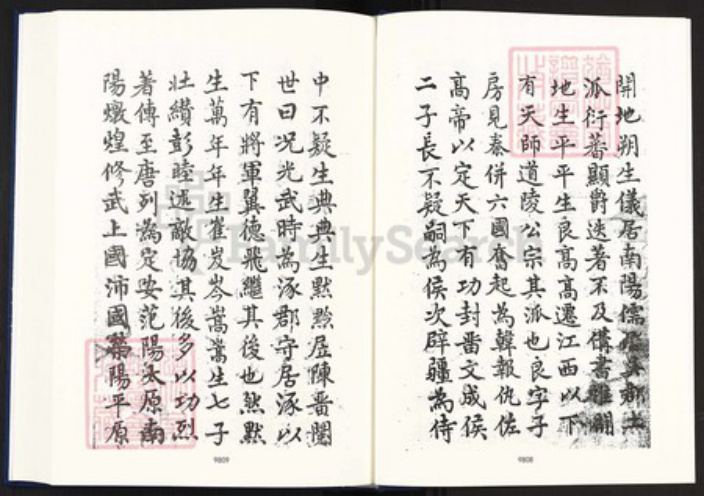 開地朔生儀居南陽儒
派衍蕃顯爵迭著不及備書雖
地生平平生良高高遷江西以下
有天師道陵公宗其派也良字子
房見秦併六國奮起為韓報仇佐
高帝以定天下有功封留文成侯
二子長不疑嗣為侯次辟疆為侍
中不疑生典典生默默居陳晉閩
世曰况光武時為涿郡守居涿以
下有將軍翼德飛繼其後也然默
生萬年年生崔岌岑嵩嵩生七子
壯纘彭睦述敵協其後多以功烈
著傳至唐列為定安范陽太原南
陽燉煌修武上國沛國滎陽平原
9809
9808
FamilySearch